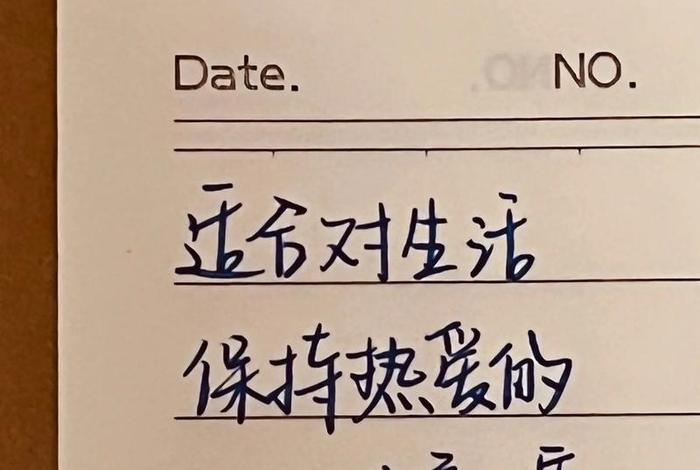 Date. NO.
适合对生活
保持热爱的